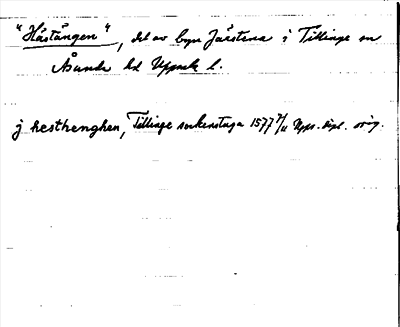 "Håstängen", del av byn Järstena i Tillinge sn
Åsunda hd Uppsala l.
j hesthenghen, Tillinge sockenstuga 1577 7/11 Upps. dipl. orig.